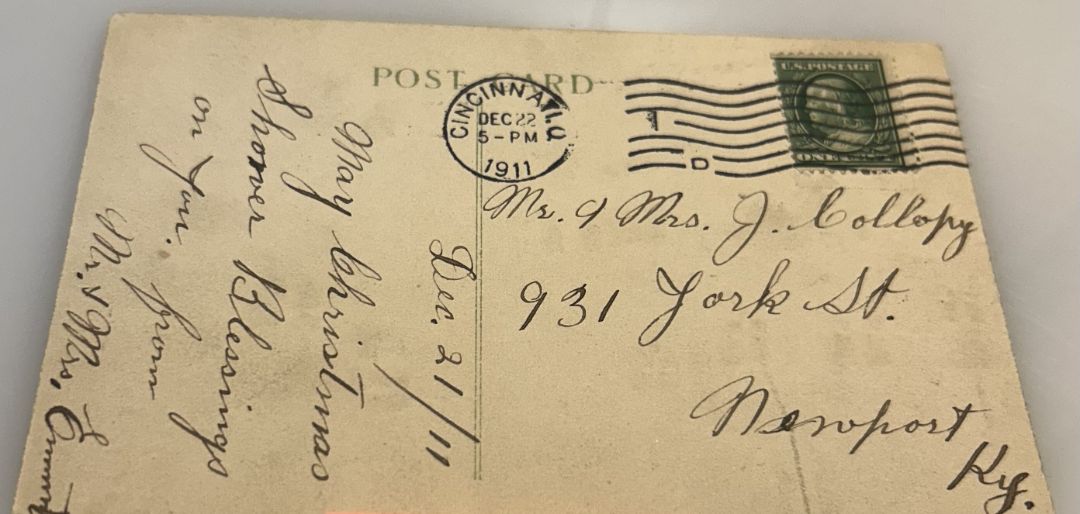 POST CARD
CINCINNATI, O.
DEC 22
5-PM
1911
1
D
U.S. POSTAGE
ONE CENT
Dec. 21/11
May Christmas
Shower Blessings
on you.
from
Mr. & Mrs.
Mr. & Mrs. J. Collopy
931 York St.
Newport
Ky.